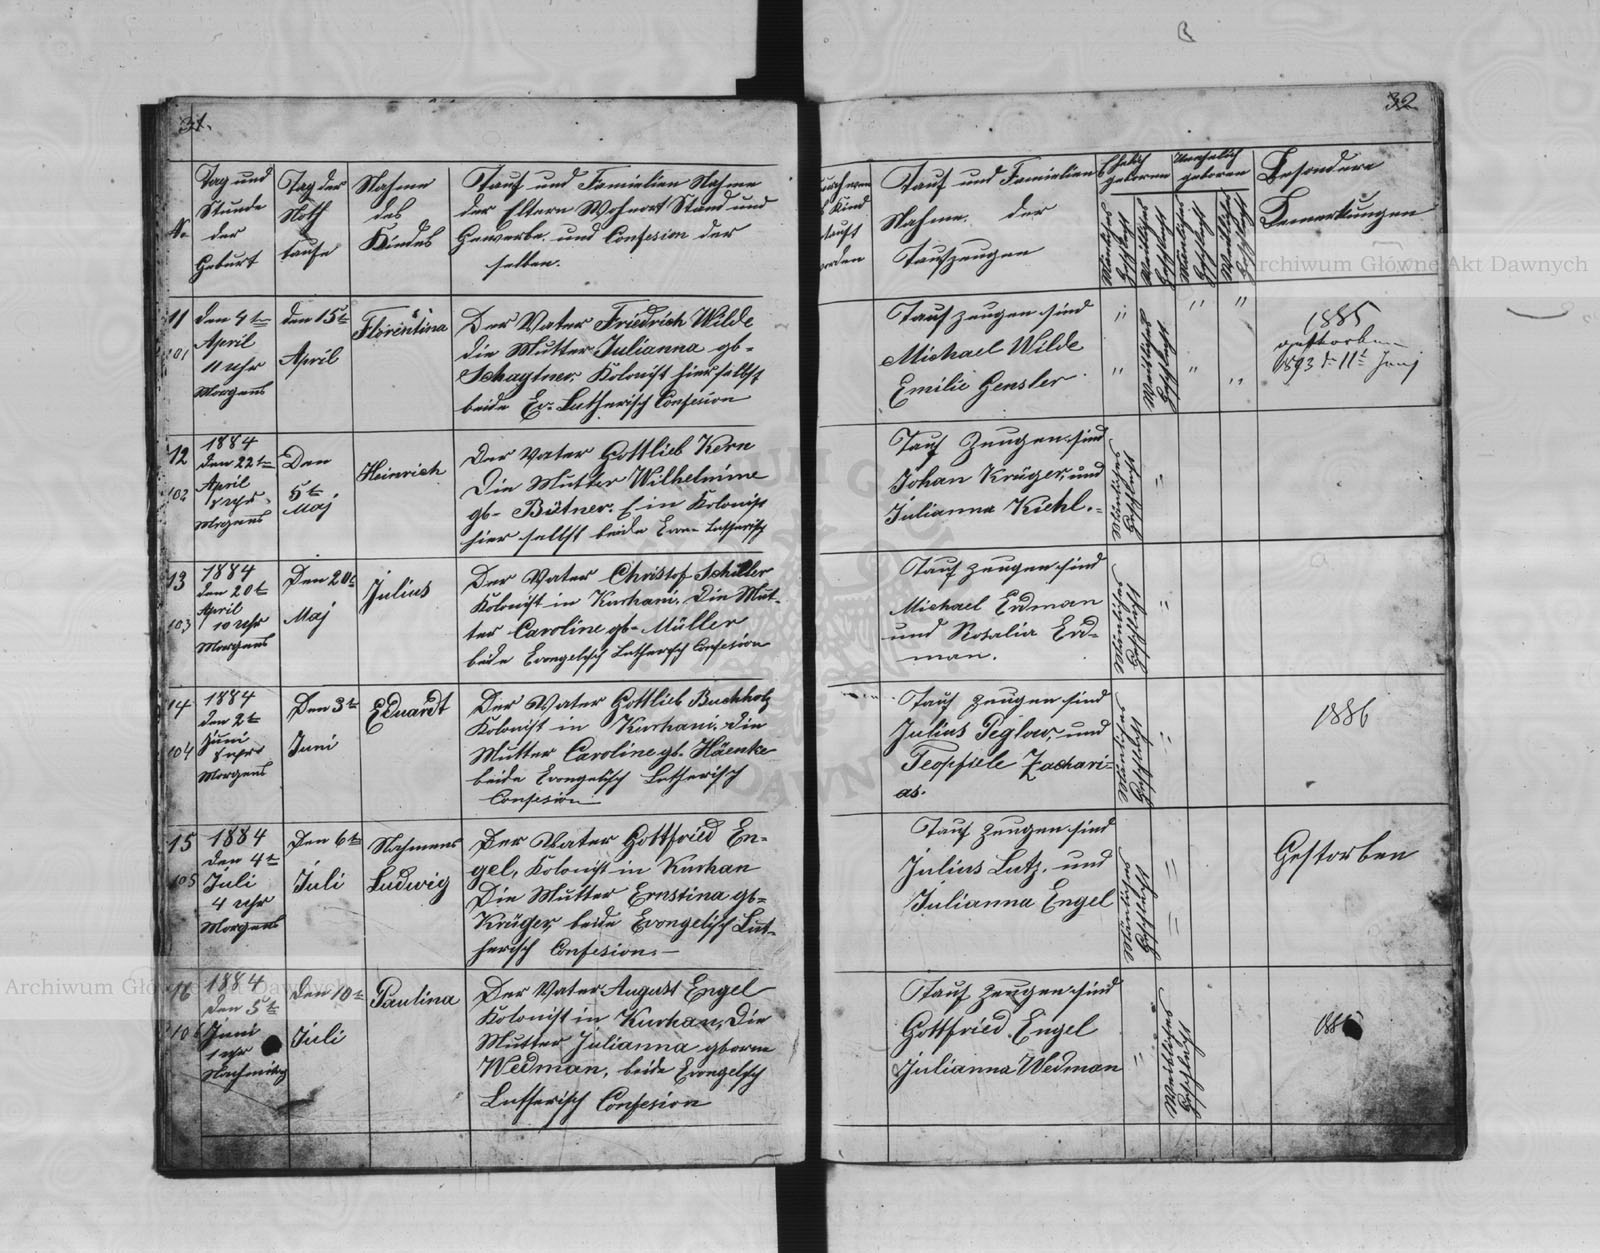 31.
No
Tag und
Stunde
der
Geburt
Tag der
Noth
taufe
Nahme
des
Kindes
Tauf und Famielien Nahme
der Eltern Wohnort Stand und
Gewerbe und Confesion der
selben.
11
101
den 4ten
April
11 uhr
Morgens
den 15t
April
Florentina
Der Vater Friedrich Wilde
die Mutter Julianna gb-
Schaytner. Kolonist hier selbst
beide Ev= Lutherisch Confesion
12
102
1884
den 22ten
April
uhr
Morgens
Den
5te
Maj
Heinrich
Der Vater Gottlieb Kern
Die Mutter Wilhelmine
gb- Bütner. Ein Kolonist
hier selbst beide Evan= Lutherisch
13
103
1884
den 20t
April
10 uhr
Morgens
Den 20t
Maj
Julius
Der Vater Christof Schiller
Kolonist in Kurhani. Die Mut-
ter Caroline gb- Müller
beide Evangelisch Lutherisch Confesion
14
104
1884
den 2te
Juni
uhr
Morgens
Den 3te
Juni
Eduardt
Der Vater Gottlieb Buchholz
Kolonist in Kurhani. die
Mutter Caroline gb. Häenke
beide Evangelisch Lutherisch
Confesion
15
105
1884
den 4te
Juli
4 uhr
Morgens
Den 6te
Juli
Nahmens
Ludwig
Der Vater Gottfried En-
gel, Kolonist in Kurhan
Die Mutter Ernstina gb=
Krüger, beide Evangelisch Lut-
herisch Confesion.
16
106
1884
den 5te
Juni
1 uhr
Nachmittag
Den 10te
Juli
Paulina
Der Vater August Engel
Kolonist in Kurhan, Die
Mutter Julianna geboren
Wedman, beide Evangelisch
Lutherisch Confesion
32
durch wem
Kind
tauft
worden
Tauf und Famielien
Nahme. der
Taufzeugen
Ehelich
geboren
Unehelich
geboren
Mänliches
Geschlecht
Weibliches
Geschlecht
Mänliches
Geschlecht
Weibliches
Geschlecht
Besondere
Bemerkungen
Taufzeugen sind
Michael Wilde
Emilie Gensler
Weibliches
Geschlecht
1885
gestorben
1893 d 11t Junj
Tauf Zeugen sind
Johan Krüger, und
Julianna Kiehl.
Mänliches
Geschlecht
Tauf zeugen sind
Michael Erdman
und Rosalia Erd-
man.
Mänliches
Geschlecht
Tauf zeugen sind
Julius Peglow, und
Teoffiele Zachari-
as.
Mänliches
Geschlecht
1886
Tauf zeugen sind
Julius Lutz. und
Julianna Engel
Mänliches
Geschlecht
Gestorben
Tauf zeugen sind
Gottfried Engel
Julianna Wedman
Weibliches
Geschlecht
Archiwum Główne Akt Dawnych
Archiwum Główne Akt Dawnych